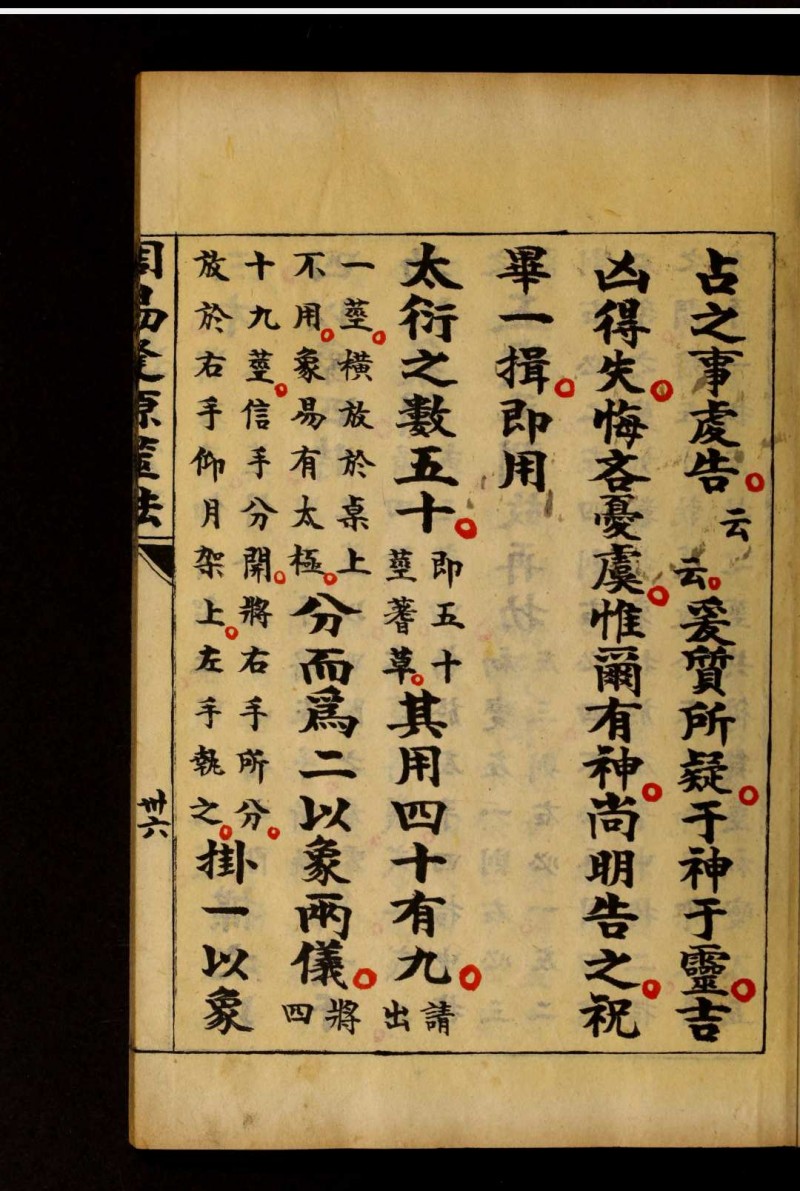 占之事虔告。云云。爰質所疑。于神于靈。吉
凶得失。悔吝憂虞。惟爾有神。尚明告之。祝
畢一揖。即用
太衍之數五十。即五十莖蓍草。其用四十有九。請出
一莖。橫放於桌上不用。象易有太極。分而爲二以象兩儀。將四
十九莖。信手分開。將右手所分。放於右手仰月架上。左手執之。掛一以象
周易原筮法
卅六